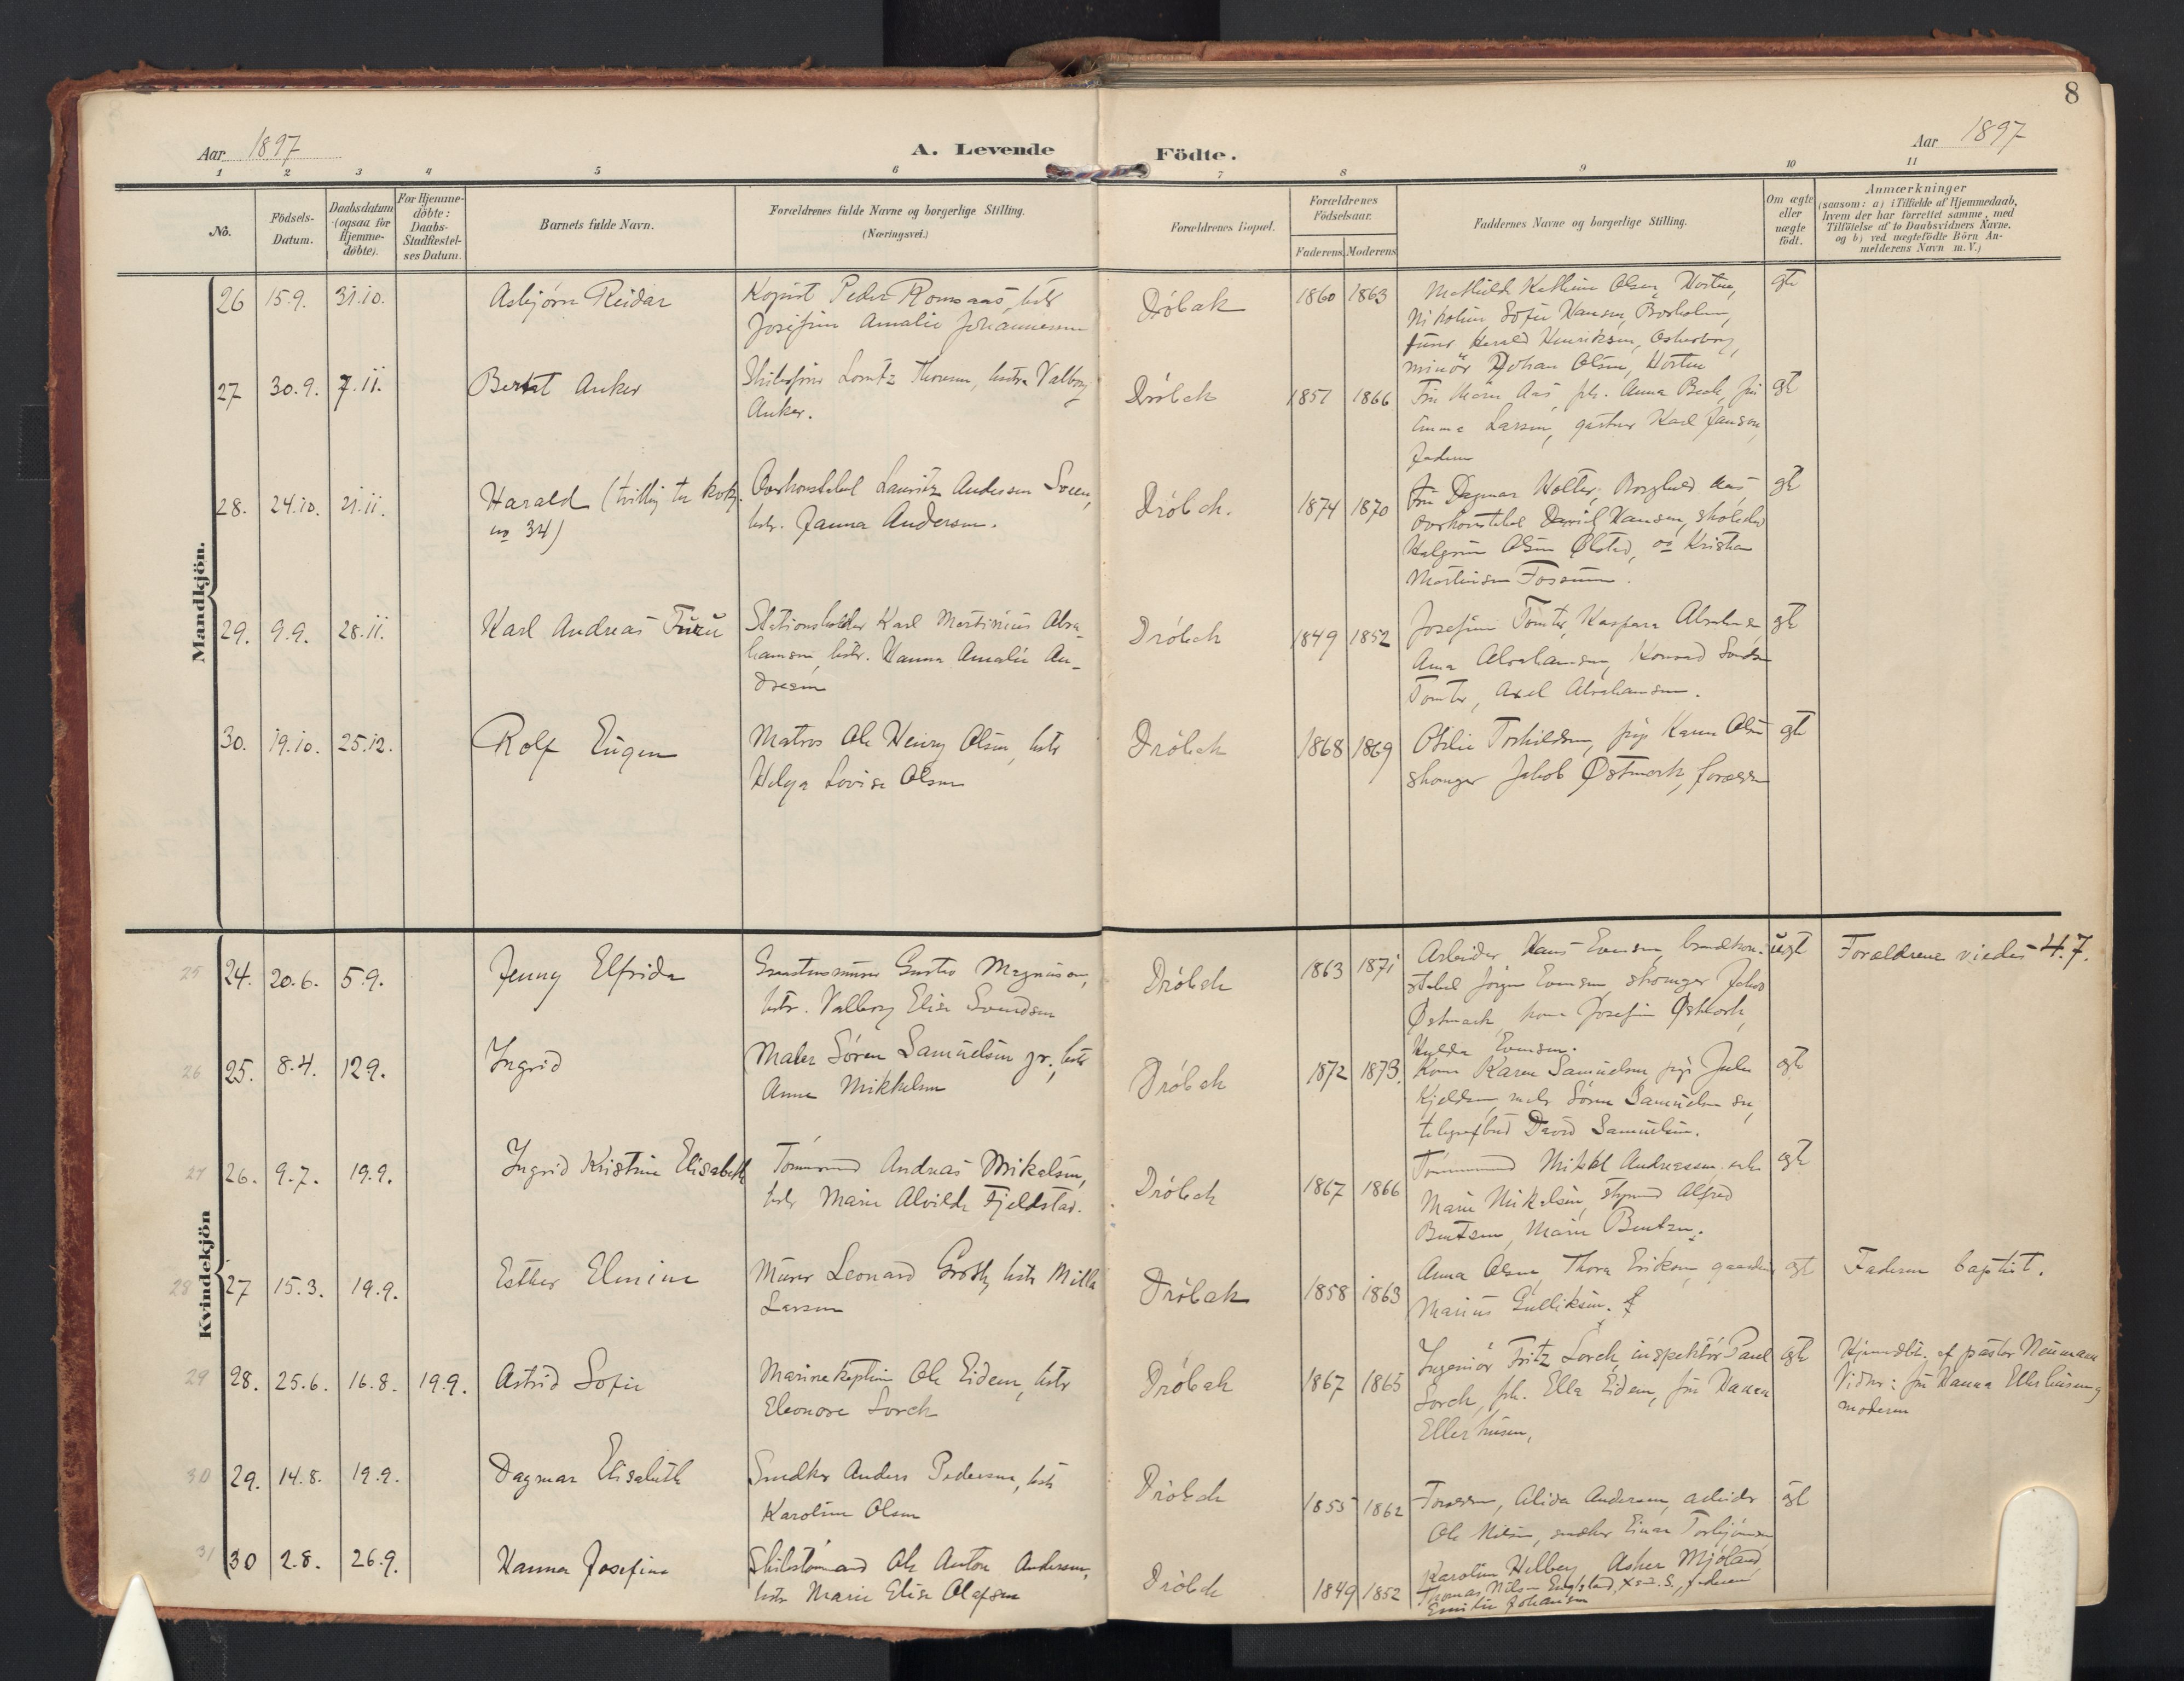 8
Aar 1897
A. Levende Födte.
Aar 1897
1 2 3 4 5 6 7 8 9 10 11
No.
Födsels-
Datum.
Daabsdatum
(ogsaa for
Hjemme-
döbte).
For Hjemme-
döbte:
Daabs-
Stadfæstel-
ses Datum.
Barnets fulde Navn.
Forældrenes fulde Navne og borgerlige Stilling.
(Næringsvei.)
Forældrenes Bopæl.
Forældrenes
Födselsaar.
Faderens. Moderens.
Faddernes Navne og borgerlige Stilling.
Om ægte
eller
uægte
födt.
Anmærkninger
(saasom: a) i Tilfælde af Hjemmedaab,
hvem der har forrettet samme, med
Tilföielse af to Daabsvidners Navne,
og b) ved uægtefödte Börn An-
melderens Navn m. V.)
Mandkjön.
26 15.9. 31.10. Asbjörn Reidar
Kopist Peder Romsaas, hstr
Josefine Amalie Johannessen
Dröbak 1860 1863
Mathilde Kathrine Olsen, Horten,
Nikoline Sofie Hansen, Borholm,
Harald Henriksen, Oskarborg,
minör Johan Olsen, Horten
gte
27 30.9. 7.11. Berent Anker
Skibsförer Lorentz Thoresen, hustru Valborg
Anker.
Dröbak 1857 1866
Fru Marie Aas, frk. Anna Beck, fru
Emma Larsen, gartner Karl Jansen,
faderen
gte
28. 24.10. 21.11. Harald (tvilling til kvk.
no 34)
Overkonstabel Lauritz Andersen Sveen,
hstr. Janna Andersen.
Dröbak. 1874 1870
Fru Dagmar Holter, Borghild Aas
overkonstabel David Hansen,
Halgrim Olsen Ølsted, og Kristian
Martinsen Fossum.
gte
29. 9.9. 28.11. Karl Andreas Furu
Stationsholder Karl Martinius Abra-
hamsen, hstr. Hanna Amalie An-
dresen
Dröbak 1849 1852
Josefine Tomter, Kaspara Abrahams
Anna Abrahamsen, Konrad
Tomter, Axel Abrahamsen.
gte
30. 19.10. 25.12. Rolf Eugen
Matros Ole Henry Olsen, hstr
Helga Lovise Olsen
Dröbak 1868 1869
Otilie Torkildsen, pige Karen Olsen
skomager Jakob Østmork, forældr.
gte
Kvindekjön
25 24. 20.6. 5.9. Jenny Elfrida
Gustav Magnuson,
hstr. Valborg Elise Svendsen
Dröbak 1863 1871
Arbeider Hans Evensen, brandkon-
stabel Jörgen Evensen, skomager Jakob
Østmork, kone Josefine Østmork,
Hulda Evensen.
uegte Forældrene viedes 4.7.
26 25. 8.4. 12.9. Ingrid
Maler Sören Samuelsen jr., hstr
Anna Mikkelsen
Dröbak 1872 1873.
Kone Karen Samuelsen, pige Julie
Kjeldsen, maler Sören Samuelsen sen,
telegrafbud David Samuelsen.
egte
27 26. 9.7. 19.9. Ingrid Kristine Elisabeth
Tömmermand Andreas Mikalsen,
hstr Marie Alvilde Fjeldstad.
Dröbak 1867 1866
Tömmermand Mikal Andreassen,
Marie Mikalsen, styrmand Alfred
Berntsen, Marie Berntsen.
egte
28 27 15.3. 19.9. Esther Elmine
Murer Leonard Groth, hstr Milla
Larsen
Dröbak 1858 1863
Anna Olsen, Thora Eriksen,
Marius Gulliksen.
egte Faderen baptist.
29 28. 25.6. 16.8. 19.9. Astrid Sofie
Marinekaptein Ole Eidem, hstr
Eleonore Lorck
Dröbak 1867 1865
Ingeniör Fritz Lorck, inspektör Paul
Lorck, frk. Ella Eidem, fru Hanna
Ellerhusen,
egte
Hjemdbt. af pastor Neumann
Vidner: fru Hanna Ellerhusen og
moderen
30 29. 14.8. 19.9. Dagmar Elisabeth
Snedker Anders Pedersen, hstr
Karoline Olsen
Dröbak 1855 1862
Forældrene, Alida Andersen, arbeider
Ole Nilsen, snedker Einar Torbjörnsen
egte
31 30 2.8. 26.9. Hanna Josefine
Skibstömmermand Ole Anton Andersen,
hstr Marie Elise Olafsen
Dröbak 1849 1852
Karoline Helberg, Asker Mjöland
Thomas Nilsen Engstad, faderen
Emilie Johansen